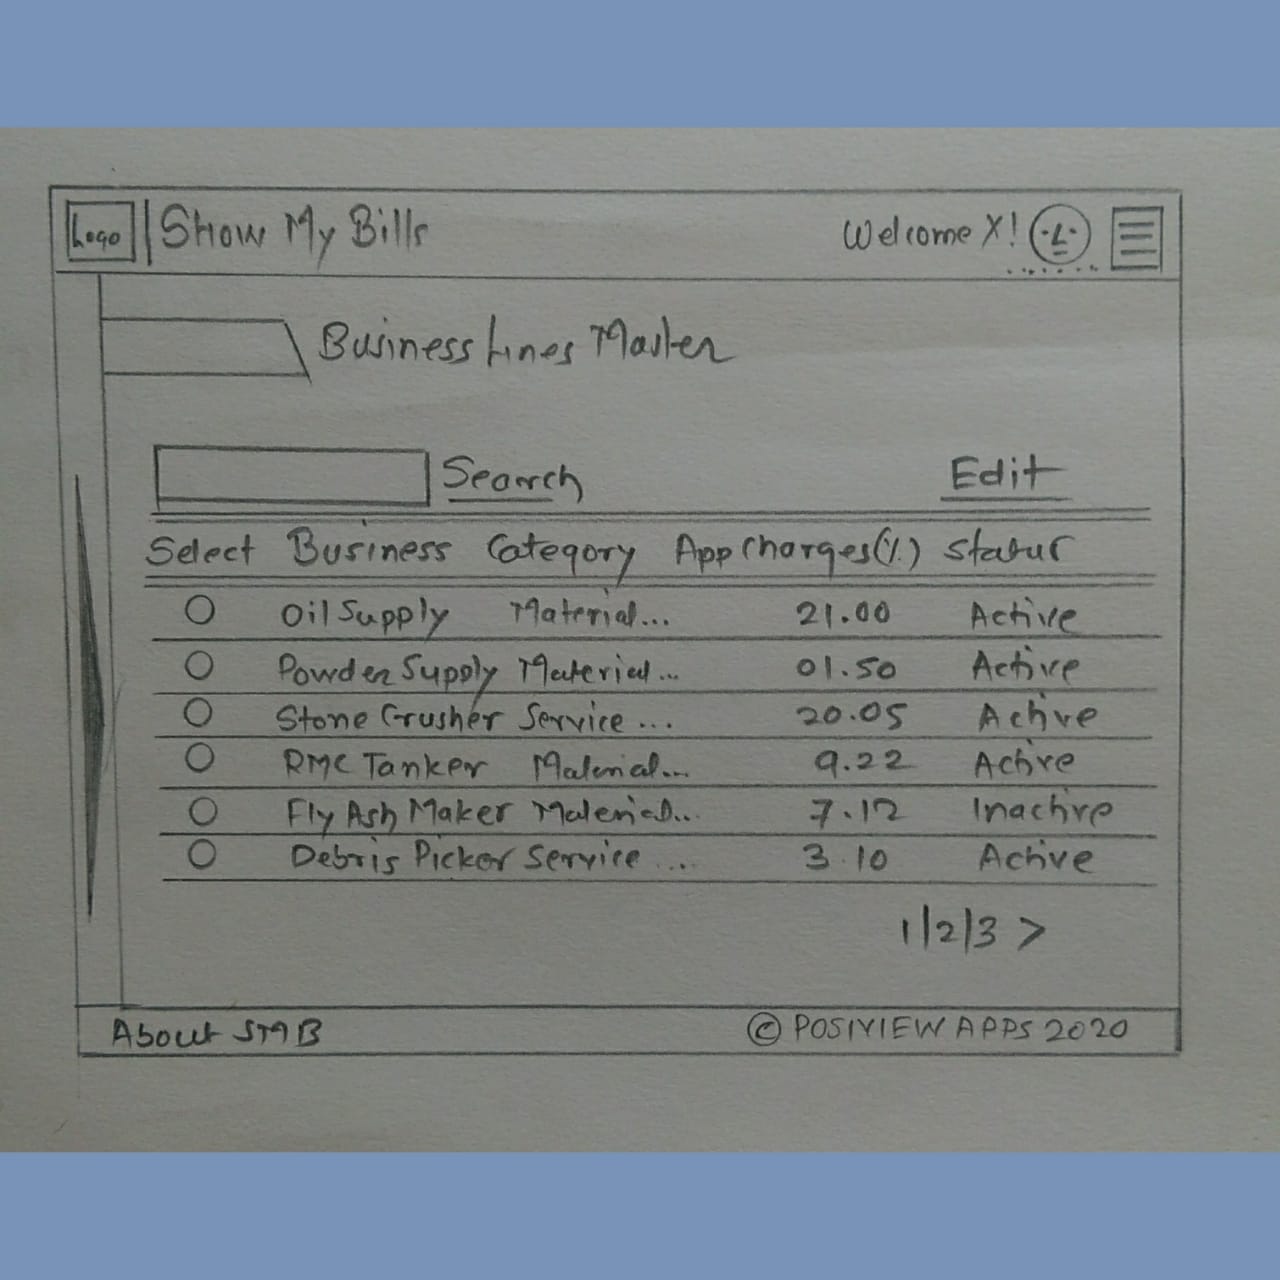 Logo | Show My Bills Welcome X!
Business Lines Master
Search Edit
Select Business Category App Charges(%) Status
Oil Supply Material... 21.00 Active
Powder Supply Material... 01.50 Active
Stone Crusher Service... 20.05 Active
RMC Tanker Material... 9.22 Active
Fly Ash Maker Material... 7.12 Inactive
Debris Picker Service .... 3.10 Active
1/2/3 >
About SMB © POSIVIEW APPS 2020